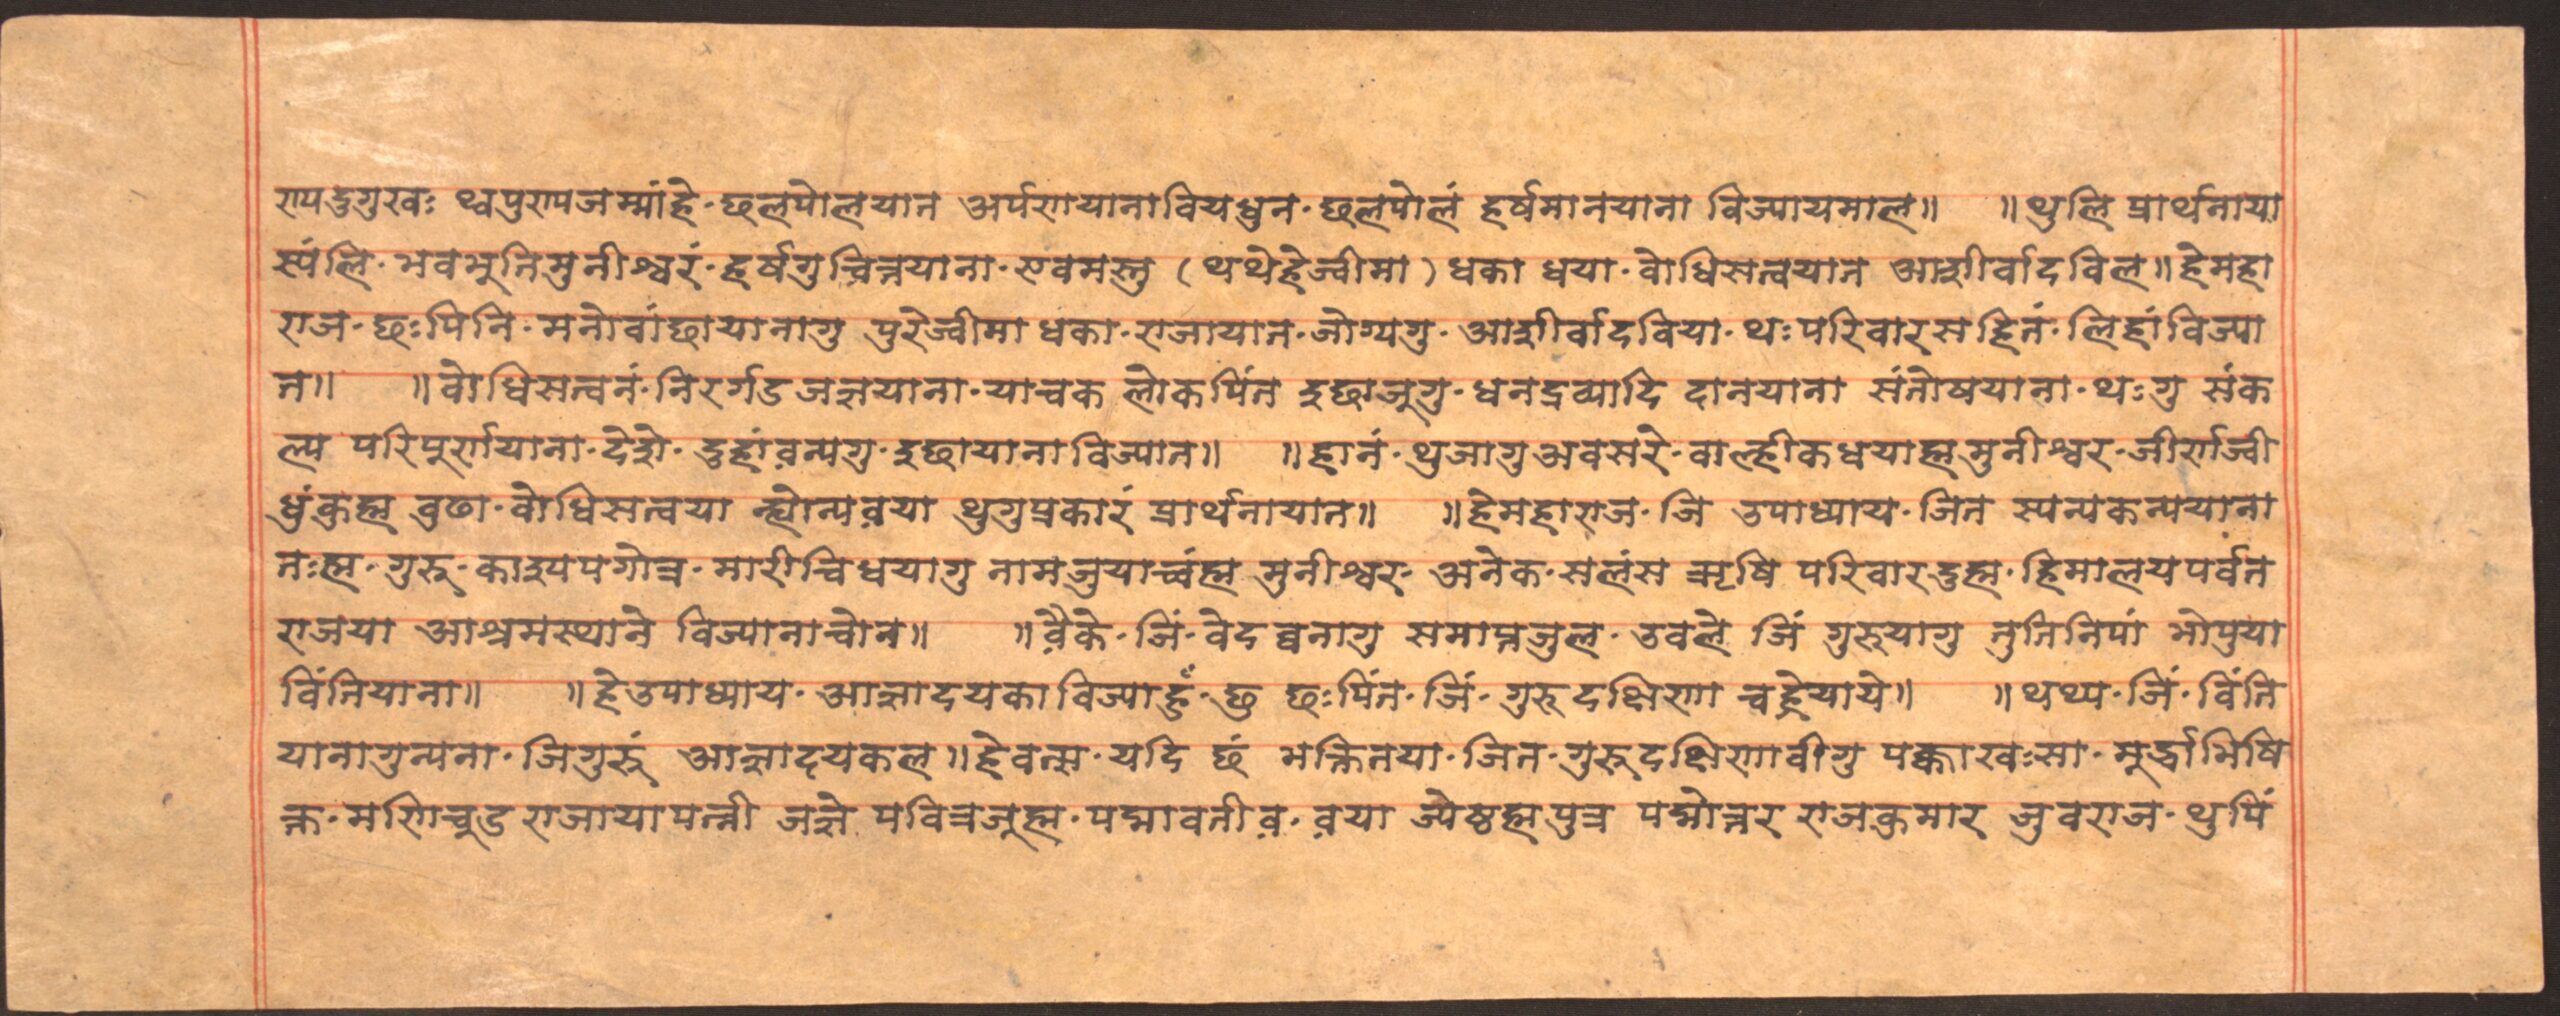 राप दुगुखः थ्व पुराप जम्मांहे· छलपोलयात अर्पणयानाविय धुन· छलपोलं हर्षमानयाना विज्यायमाल॥ ॥थुलि प्रार्थनाया
स्पंलि· भवभुतिमुनीश्वरं· हर्षगुचित्तयाना· एवमस्तु (थथेहेज्वीमा) धका धया· वोधिसत्वयात आशीर्वादविल॥हेमहा
राज· छःपिनि· मनोवांछायानागु पुरेज्वीमा धका· राजायात· जोग्यगु· आशीर्वादविया· थःपरिवारसहितं· लिहांविज्या
त॥ ॥वोधिसत्वनं· निरर्गड जज्ञयाना· याचक लोकपिंत इछाजुगु· धनद्रव्यादि दानयाना संतोषयाना· थःगु संक
ल्प परिपुर्णयाना· देशे· दुहांवन्यगु· इछायानाविज्यात॥ ॥हानं· थुजागुअवसरे· वाल्हीकधयाह्ममुनीश्वर· जीर्णज्वी
धुंकुह्म वुढा· वोधिसत्वया न्ह्योन्यवया थुगुप्रकारं प्रार्थनायात॥ ॥हेमहाराज· जि उपाध्याय· जित स्यन्यकन्ययाना
तःह्म· गुरु· काश्यपगोत्र· मारीचिधयागु नामजुयाच्वंह्म मुनीश्वर· अनेक· सलंस ऋषि परिवारदुह्म· हिमालयपर्वत
राजया आश्रमस्थाने विज्यानाचोन॥ ॥वैके· जिं· वेद ब्वनागु समाप्तजुल· उवले जिं गुरुयागु तुतिनिपां भोपुया
विंतियाना॥ ॥हेउपाध्याय· आज्ञादयका विज्याहुँ· छु छःपिंत· जिं· गुरुदक्षिणा चह्रेयाये॥ ॥थथ्य· जिं· विंति
यानागुन्यना· जिगुरुं आज्ञादयकल॥हेवत्स· यदि छं भक्तितया· जित· गुरुदक्षिणावीगु पक्काखःसा· मूर्द्धाभिषि
क्त· मणिचुड राजायापत्नी जज्ञे पवित्रजूह्म· पद्मावतीव· वया ज्येष्ठह्मपुत्र पद्मोत्तर राजकुमार जुवराज· थुपिं